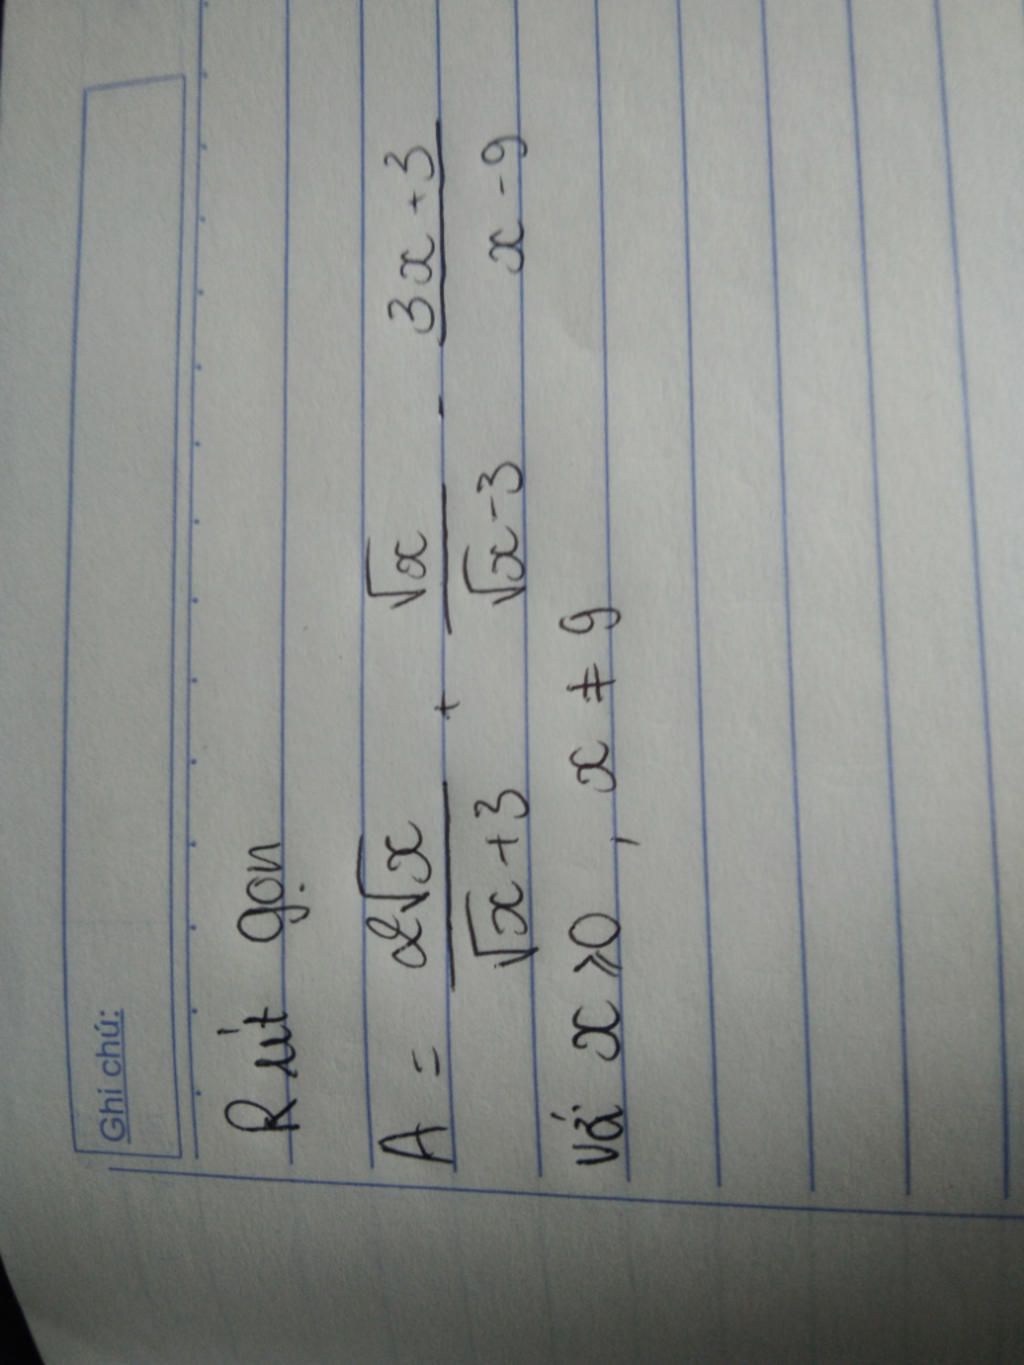 Ghi chú:
Rút gọn
A = 2√x / √x + 3 + √x / √x - 3 - 3x + 3 / x - 9
với x ⩾ 0 , x ≠ 9